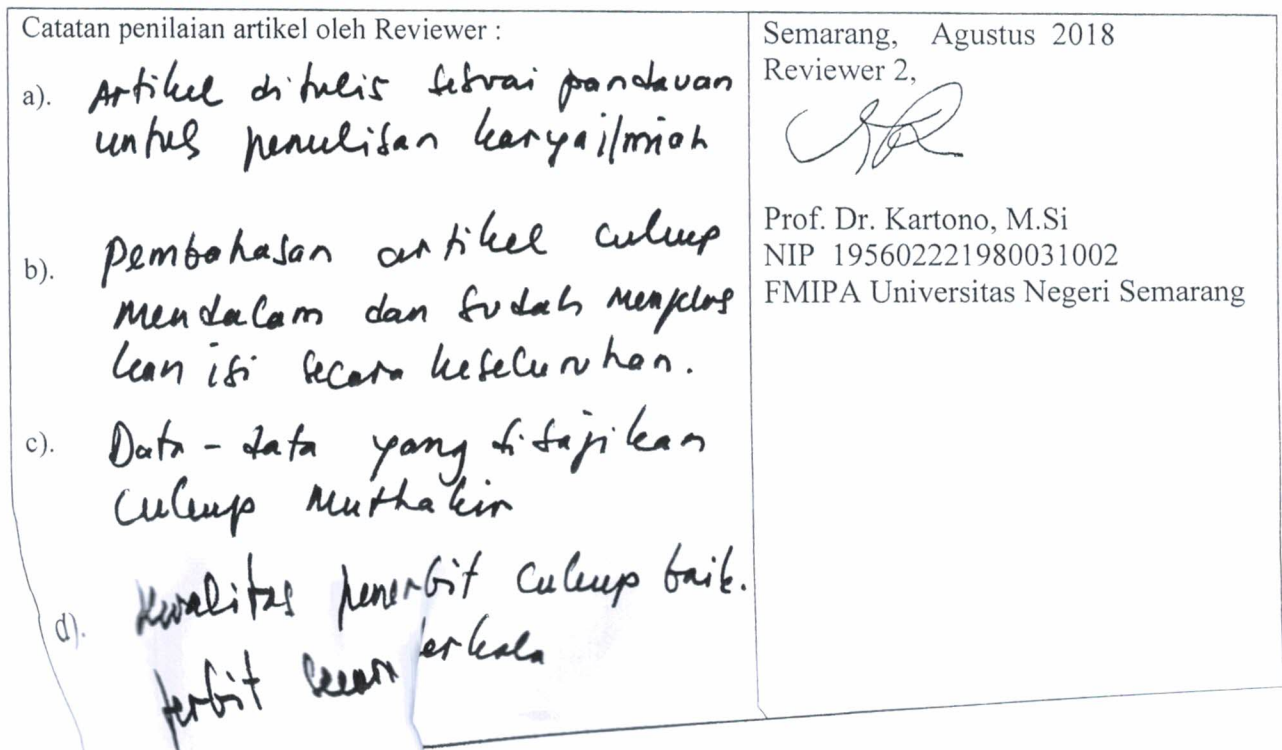 Catatan penilaian artikel oleh Reviewer :
a). Artikel ditulis sesuai panduan
untuk penulisan karya ilmiah
b). Pembahasan artikel cukup
mendalam dan sudah menjelas
kan isi secara keseluruhan.
c). Data-data yang disajikan
cukup muthakir
d). Kwalitas penerbit cukup baik.
terbit secara erkala
Semarang, Agustus 2018
Reviewer 2,
Prof. Dr. Kartono, M.Si
NIP 195602221980031002
FMIPA Universitas Negeri Semarang